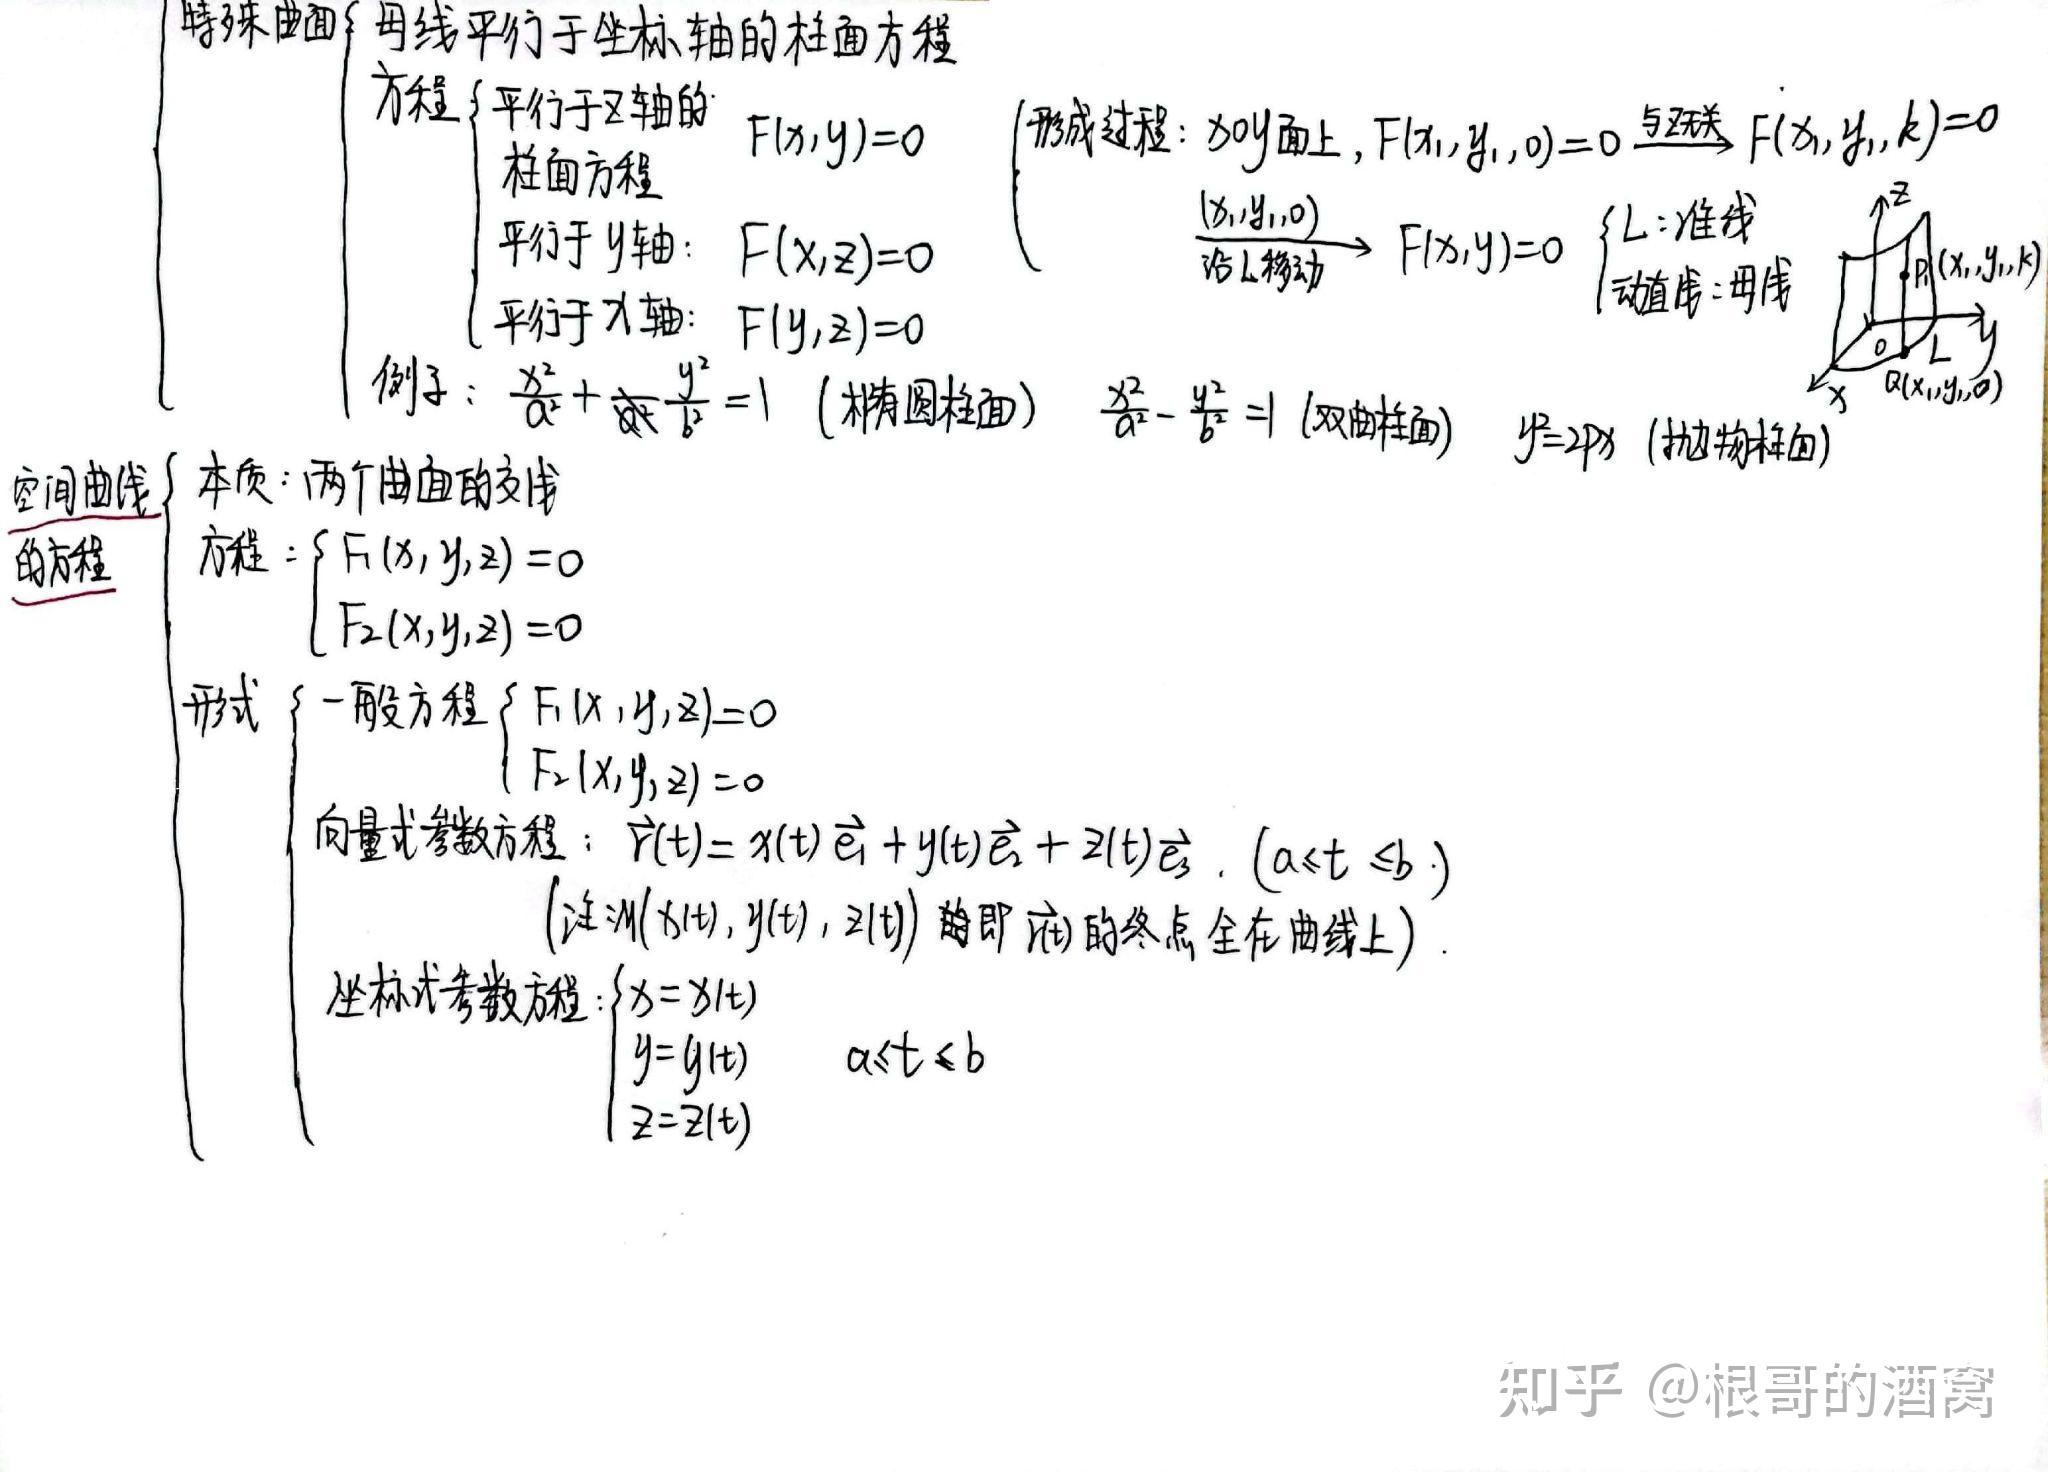 特殊曲面 { 母线平行于坐标轴的柱面方程
方程 { 平行于z轴的柱面方程 F(x,y)=0
平行于y轴: F(x,z)=0
平行于x轴: F(y,z)=0
(形成过程: xoy面上, F(x₁,y₁,0)=0 —与z无关→ F(x₁,y₁,k)=0
—(x₁,y₁,0) 沿L移动→ F(x,y)=0 { L:准线
动直线:母线
z
P₁(x₁,y₁,k)
O L y
x Q(x₁,y₁,0)
例子: x²/a² + y²/b² = 1 (椭圆柱面) x²/a² - y²/b² = 1 (双曲柱面) y²=2px (抛物柱面)
空间曲线的方程 { 本质:两个曲面的交线
方程: { F₁(x,y,z)=0
F₂(x,y,z)=0
形式 { 一般方程 { F₁(x,y,z)=0
F₂(x,y,z)=0
向量式参数方程: r⃗(t)=x(t)e⃗₁+y(t)e⃗₂+z(t)e⃗₃. (a≤t≤b.)
(注:M(x(t),y(t),z(t)) 即 r⃗(t)的终点全在曲线上).
坐标式参数方程: { x=x(t)
y=y(t) a≤t≤b
z=z(t)
知乎 @根哥的酒窝